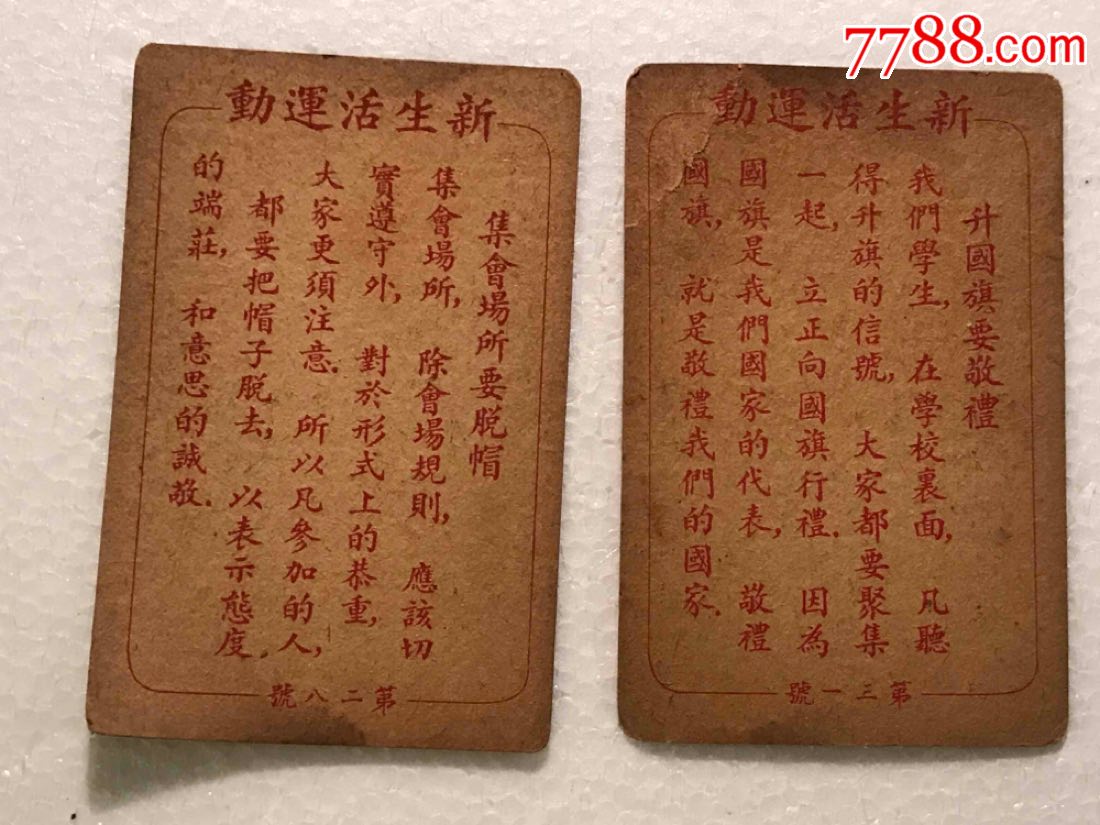 7788.com
新生活運動
集會場所要脱帽
集會場所, 除會場規則, 應該切
實遵守外, 對於形式上的恭重,
大家更須注意. 所以凡參加的人,
都要把帽子脱去, 以表示態度.
的端莊, 和意思的誠敬.
第二八號
新生活運動
升國旗要敬禮
我們學生, 在學校裏面, 凡聽
得升旗的信號, 大家都要聚集
一起, 立正向國旗行禮. 因為
國旗是我們國家的代表, 敬禮
國旗, 就是敬禮我們的國家.
第三一號